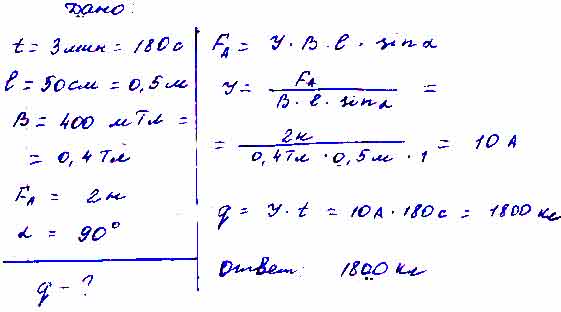 Дано:
t = 3 мин = 180 с
l = 50 см = 0,5 м
B = 400 мТл =
= 0,4 Тл
F_A = 2н
α = 90°
q - ?
F_A = У · B · l · sin α
У = F_A / B · l · sin α =
= 2н / 0,4Тл · 0,5м · 1 = 10 А
q = У · t = 10А · 180с = 1800 кл
ответ: 1800 кл